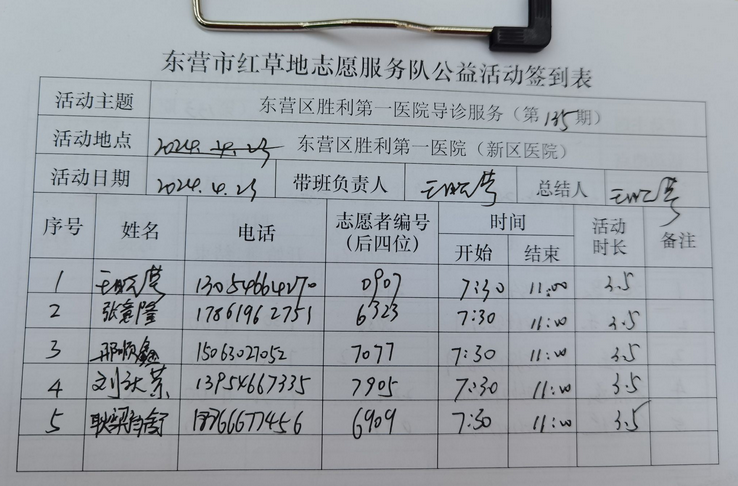 东营市红草地志愿服务队公益活动签到表
活动主题 东营区胜利第一医院导诊服务（第135期）
活动地点 2024.4.23 东营区胜利第一医院（新区医院）
活动日期 2024.4.23 带班负责人 总结人
序号 姓名 电话 志愿者编号（后四位） 时间 开始 结束 活动时长 备注
1 13054664270 0907 7:30 11:00 3.5
2 张竟隆 17861962751 6323 7:30 11:00 3.5
3 15063027052 7077 7:30 11:00 3.5
4 13954667335 7905 7:30 11:00 3.5
5 66677456 6909 7:30 11:00 3.5